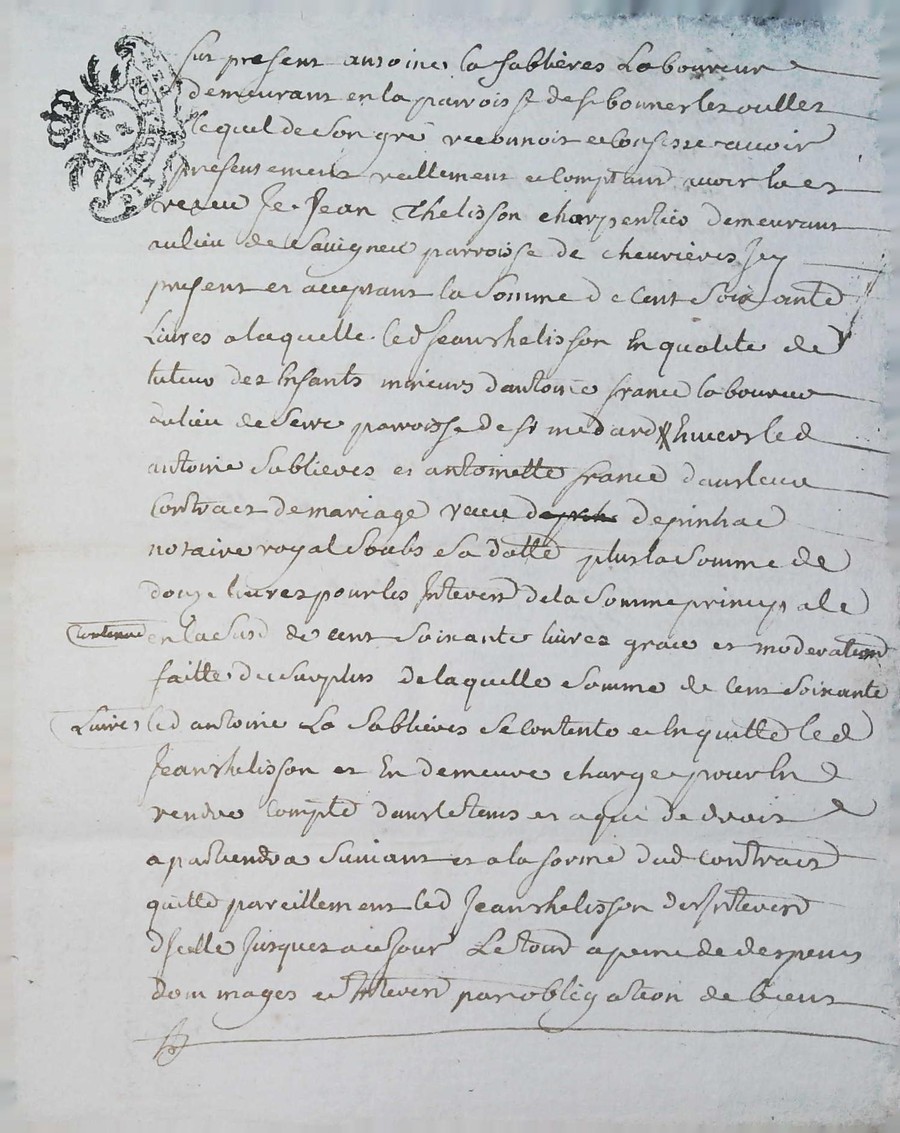 fut present antoine la sablieres Laboureur
demeurant en la parroisse de st bonnet les oulles
lequel de son gré reconnoit et confesse avoir
presentement reellement et comptant avoir heu et
receu de Jean Thelisson charpentier demeurant
au lieu de parroisse de chevrieres Jcy
present et acceptant la somme de cent soixante
Livres a laquelle led Jean thelisson En qualité de
tuteur des Enfants mineurs dantoine france laboureur
au lieu de parroisse de st medard Envers led
antoine Sablieres et antoinette france dans leur
Contract de mariage receu depinhac
notaire royal soubs sa datte plus la somme de
douze livres pour les Interest de la somme principale
contenue en la susd de cent soixante livres grace et moderation
faitte du surplus de laquelle somme de cent soixante
Livres led antoine La Sablieres se contente et En quitte led
Jean thelisson et En demeure chargé pour En
rendre compte dans le tems et a qui de droit
apartiendra suivant et a la forme dud contract
quitte pareillement led Jean thelisson des Interest
dicelle Jusques a ce Jour Le tout a peine de despens
dommages et Interest par obligation de biens